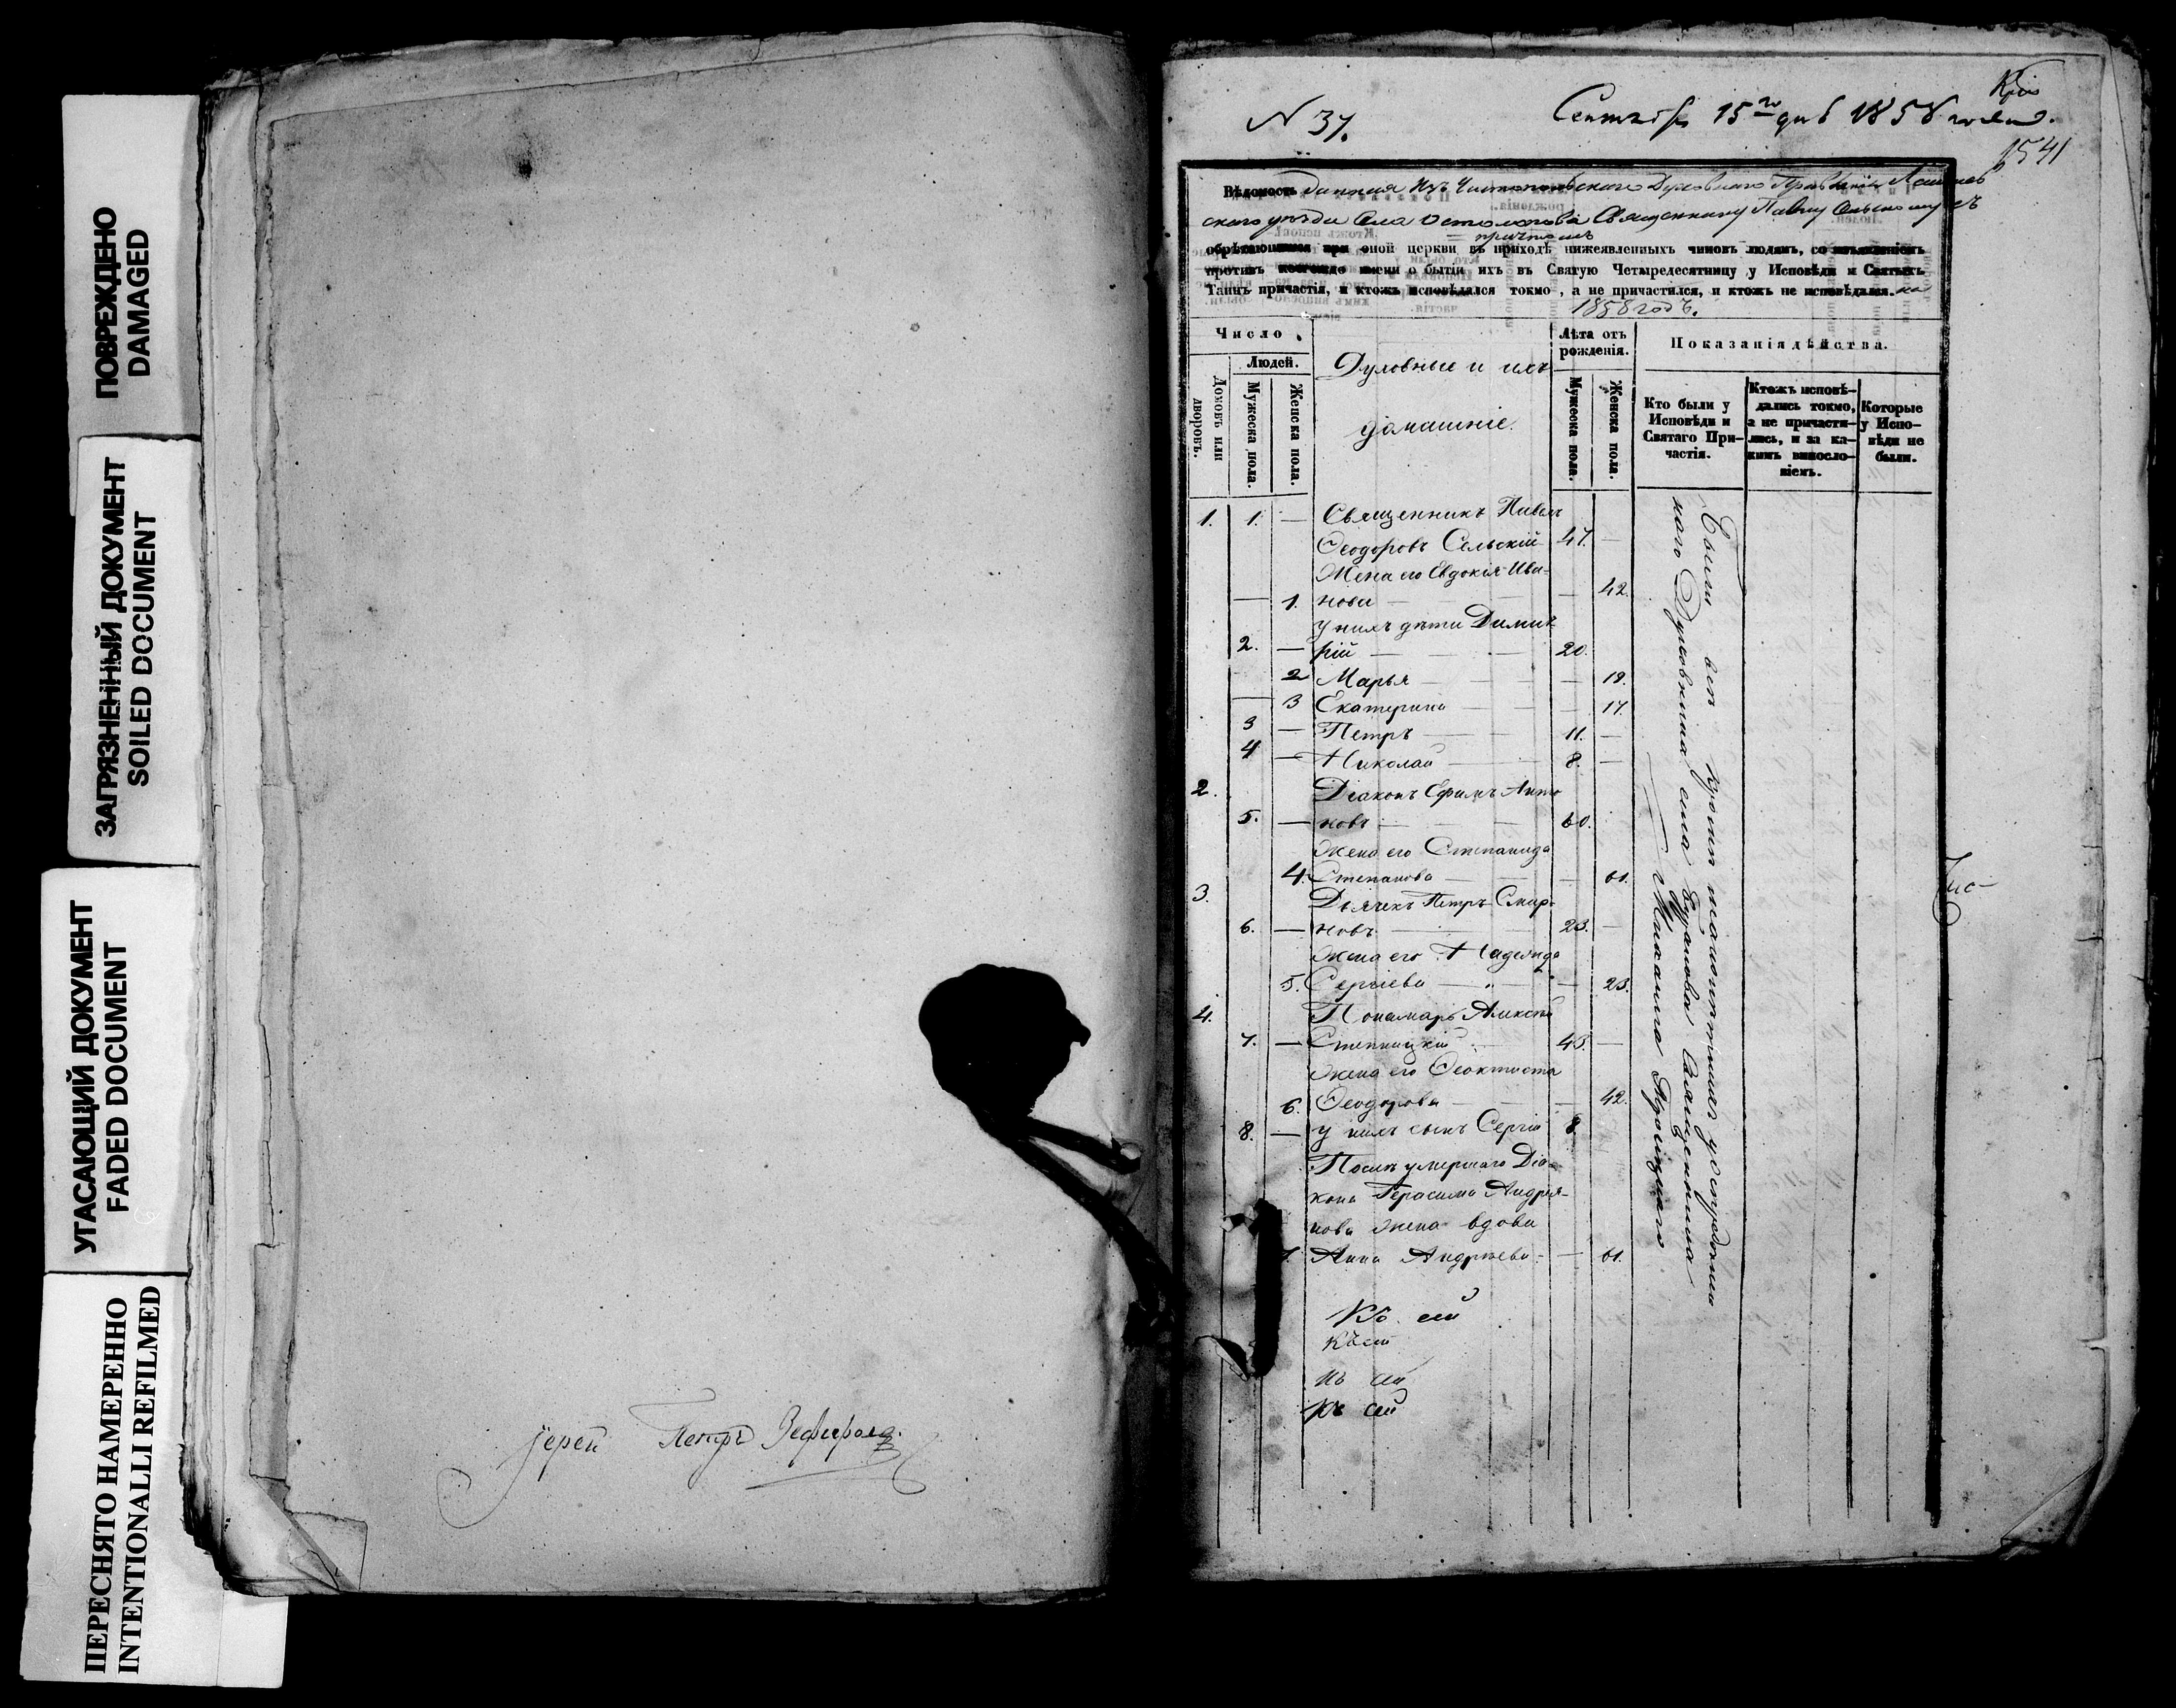 ПОВРЕЖДЕНО
DAMAGED
ЗАГРЯЗНЕННЫЙ ДОКУМЕНТ
SOILED DOCUMENT
УГАСАЮЩИЙ ДОКУМЕНТ
FADED DOCUMENT
ПЕРЕСНЯТО НАМЕРЕННО
INTENTIONALLI REFILMED
Іерей Петръ Зефировъ
N 37.
Сентября 15го дня 1858 года.
1541
Вѣдомость данная изъ Чистопольскаго Духовнаго Правленія Лаишев
скаго уѣзда села Остолопова Священнику Павлу Сельскому съ
причтомъ
обрѣтающимся при оной церкви въ приходѣ нижеявленныхъ чиновъ людямъ, со изъявленіемъ
противъ коегождо имени о бытіи ихъ въ Святую Четыредесятницу у Исповѣди и Святыхъ
Таинъ причастія, и ктожъ исповѣдался токмо, а не причастился, и ктожъ не исповѣдался. на
1858 годъ.
Число
Людей.
Домовъ или дворовъ.
Мужеска пола.
Женска пола.
Духовные и ихъ
домашніе.
Лѣта отъ рожденія.
Мужеска пола.
Женска пола.
Показанія дѣйства.
Кто были у Исповѣди и Святаго При-частія.
Ктожъ исповѣ-дались токмо, а не причасти-лись, и за ка-кимъ винносло-віемъ.
Которые у Испо-вѣди не были.
1. 1. — Священникъ Павелъ
Ѳеодоровъ Сельскій 47. —
Жена его Евдокія Ива-
— 1. нова — 42.
у нихъ дѣти Димит
2. — рій 20.
2 Марья — 19.
— 3 Екатерина — 17.
3 — Петръ 11. —
4 — Николай 8. —
2. Діаконъ Ефимъ Анто
5. — новъ 60.
Жена его Степанида
4. Степанова — 61.
3. Дьячекъ Петръ Смир-
6. — новъ 23. —
Жена его Надежда
5. Сергіева — 23.
4. Пономарь Алексѣй
7. — 45. —
Жена его Ѳеоктиста
6. Ѳеодорова — 42.
8. — у нихъ сынъ Сергій 8.
Послѣ умершаго Діа-
кона Герасима Андрея-
нова жена вдова
7. Анна Андреева — 61.
Были всѣ
наго Духовника села Священника
Михаила Троицкаго
Къ сей
Къ сей
Къ сей
Къ сей